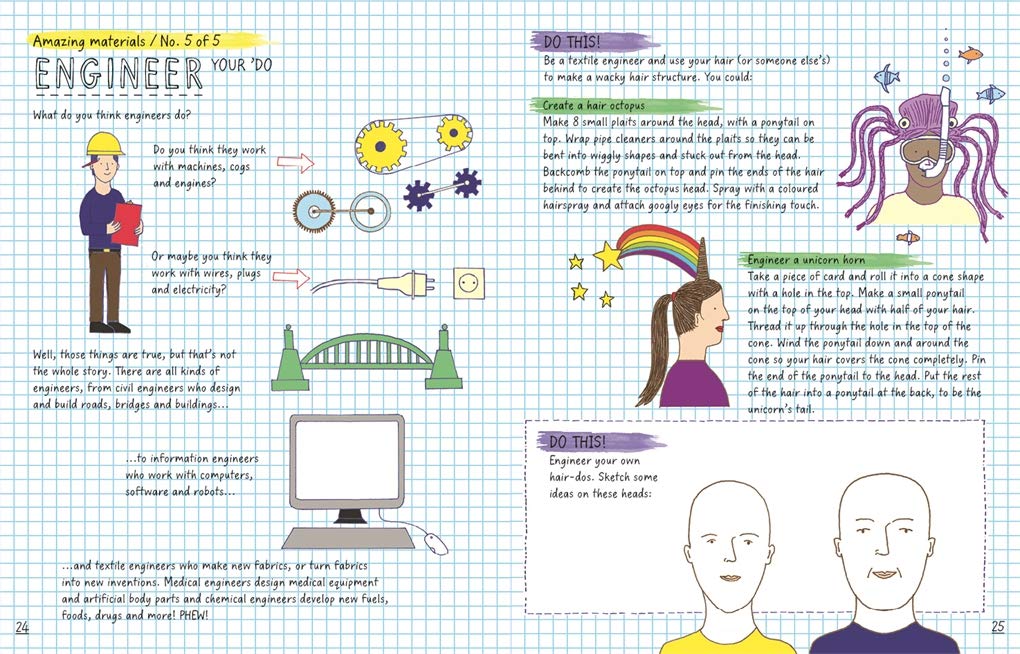 Amazing materials / No. 5 of 5
ENGINEER YOUR 'DO
What do you think engineers do?
Do you think they work
with machines, cogs
and engines?
Or maybe you think they
work with wires, plugs
and electricity?
Well, those things are true, but that's not
the whole story. There are all kinds of
engineers, from civil engineers who design
and build roads, bridges and buildings...
...to information engineers
who work with computers,
software and robots...
...and textile engineers who make new fabrics, or turn fabrics
into new inventions. Medical engineers design medical equipment
and artificial body parts and chemical engineers develop new fuels,
foods, drugs and more! PHEW!
24
DO THIS!
Be a textile engineer and use your hair (or someone else's)
to make a wacky hair structure. You could:
Create a hair octopus
Make 8 small plaits around the head, with a ponytail on
top. Wrap pipe cleaners around the plaits so they can be
bent into wiggly shapes and stuck out from the head.
Backcomb the ponytail on top and pin the ends of the hair
behind to create the octopus head. Spray with a coloured
hairspray and attach googly eyes for the finishing touch.
Engineer a unicorn horn
Take a piece of card and roll it into a cone shape
with a hole in the top. Make a small ponytail
on the top of your head with half of your hair.
Thread it up through the hole in the top of the
cone. Wind the ponytail down and around the
cone so your hair covers the cone completely. Pin
the end of the ponytail to the head. Put the rest
of the hair into a ponytail at the back, to be the
unicorn's tail.
DO THIS!
Engineer your own
hair-dos. Sketch some
ideas on these heads:
25